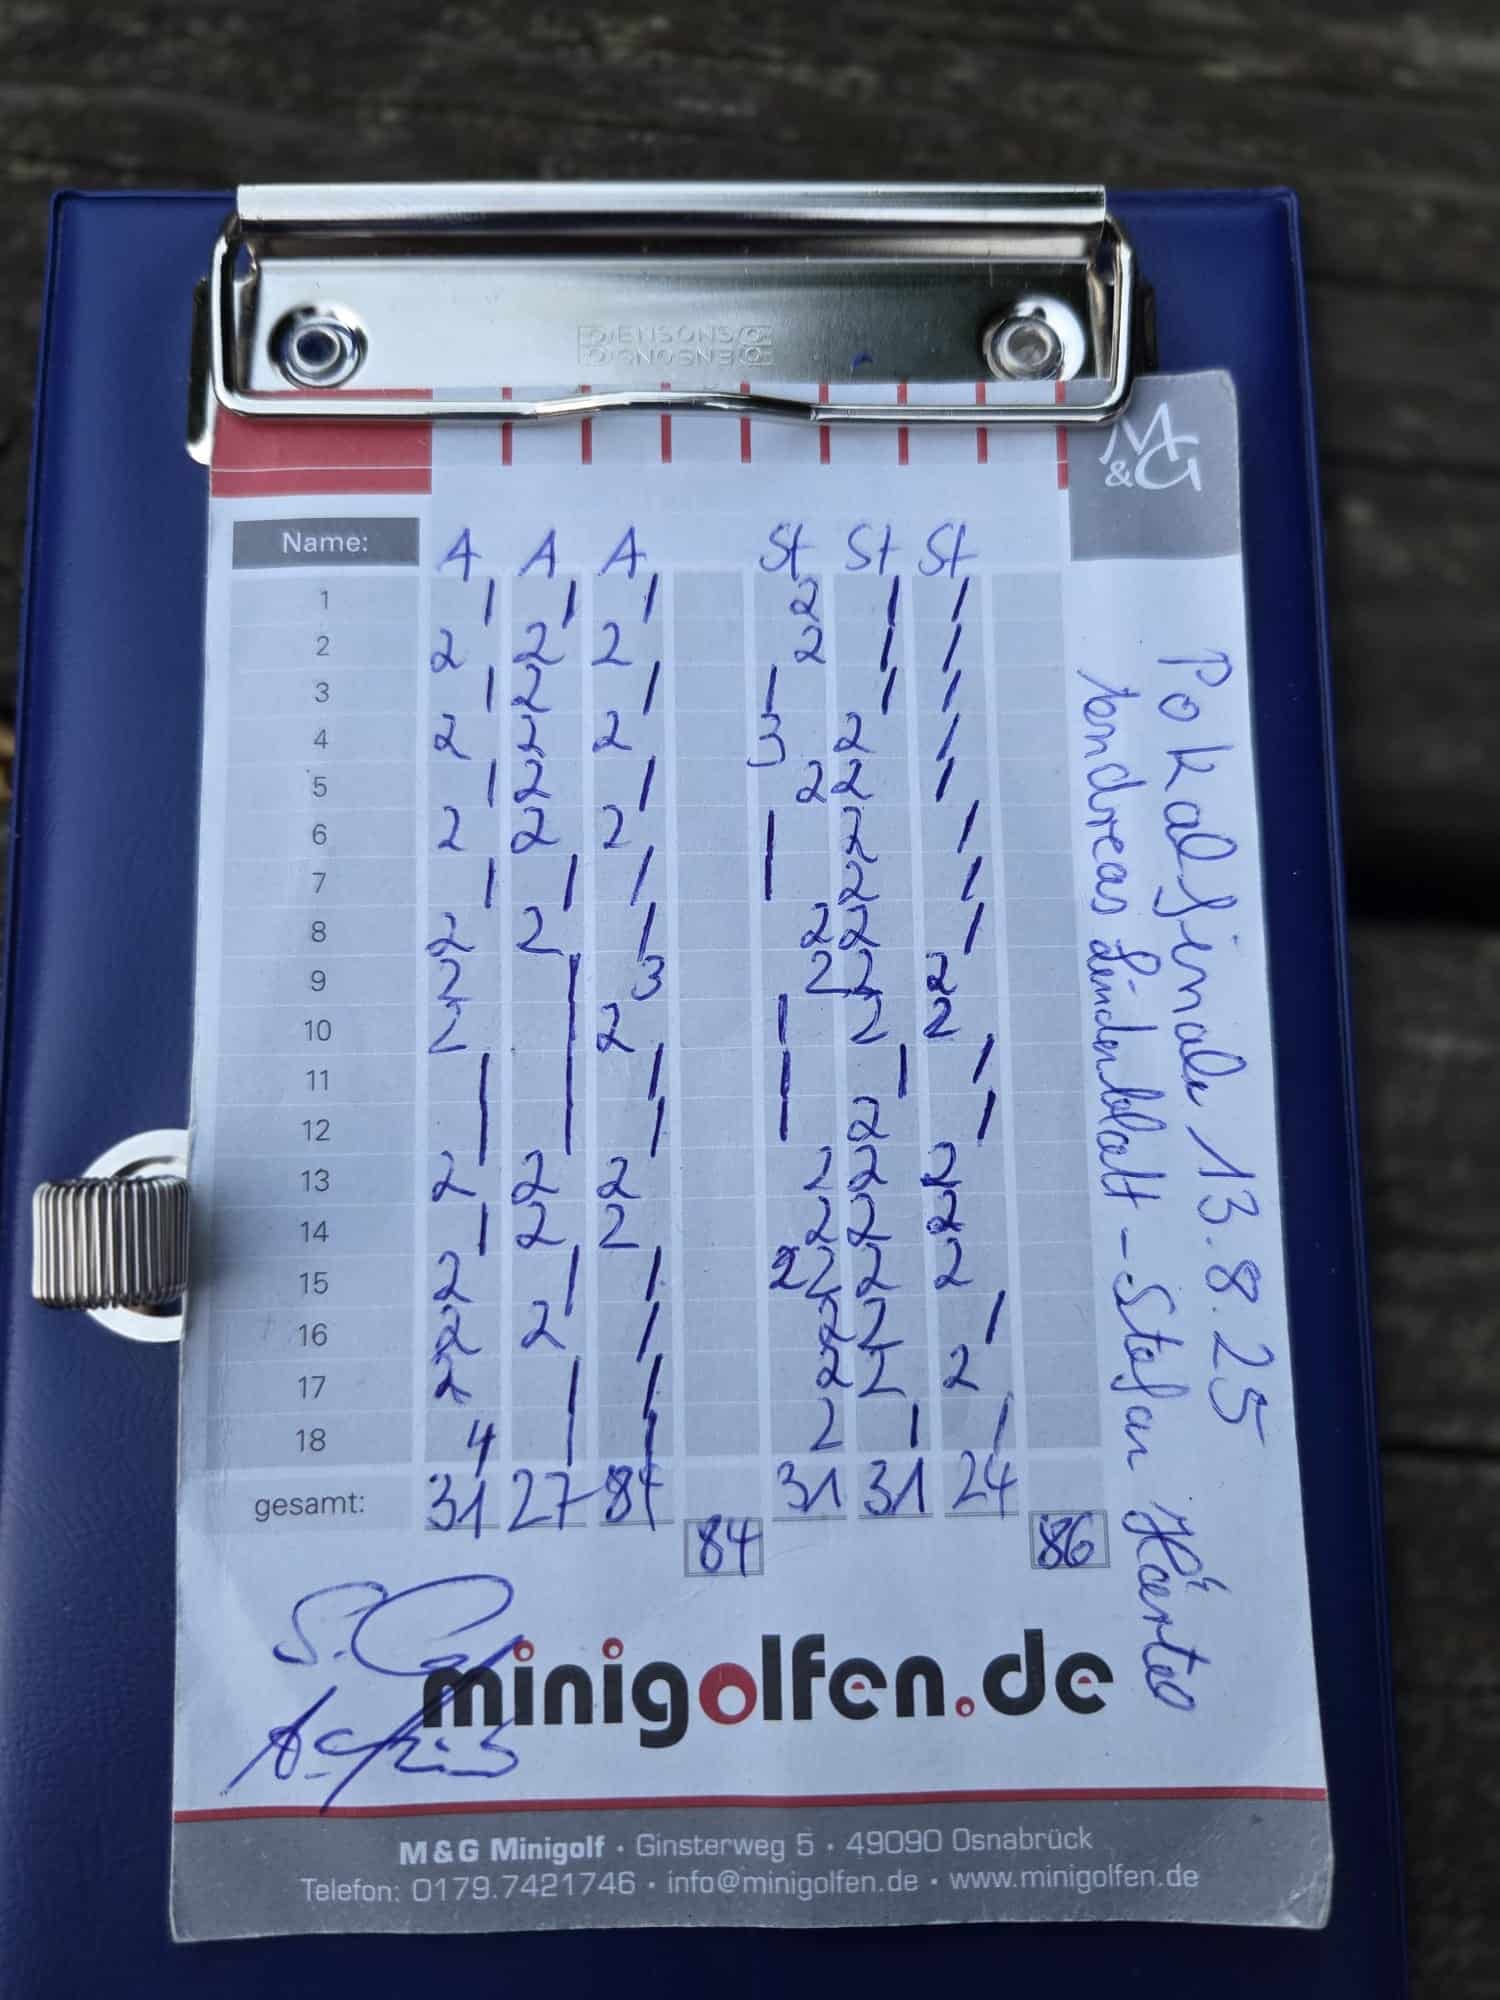 M&G
Name: A A A St St St
1 1 1 1 2 1 1
2 2 2 2 2 1 1
3 1 2 1 1 1 1
4 2 2 2 3 2 1
5 1 2 1 2 2 1
6 2 2 2 1 2 1
7 1 1 1 1 2 1
8 2 2 1 2 2 1
9 2 1 3 2 2 2
10 2 1 2 1 2 2
11 1 1 1 1 1 1
12 1 1 1 1 2 1
13 2 2 2 2 2 2
14 1 2 2 2 2 2
15 2 1 1 2 2 2 2
16 2 2 1 2 2 1
17 2 1 1 2 2 2
18 4 1 1 2 1 1
gesamt: 31 27 31 31 24
84 86
Pokalfinale 13.8.25
Andreas Lindenblatt - Stefan
minigolfen.de
M&G Minigolf · Ginsterweg 5 · 49090 Osnabrück
Telefon: 0179.7421746 · info@minigolfen.de · www.minigolfen.de